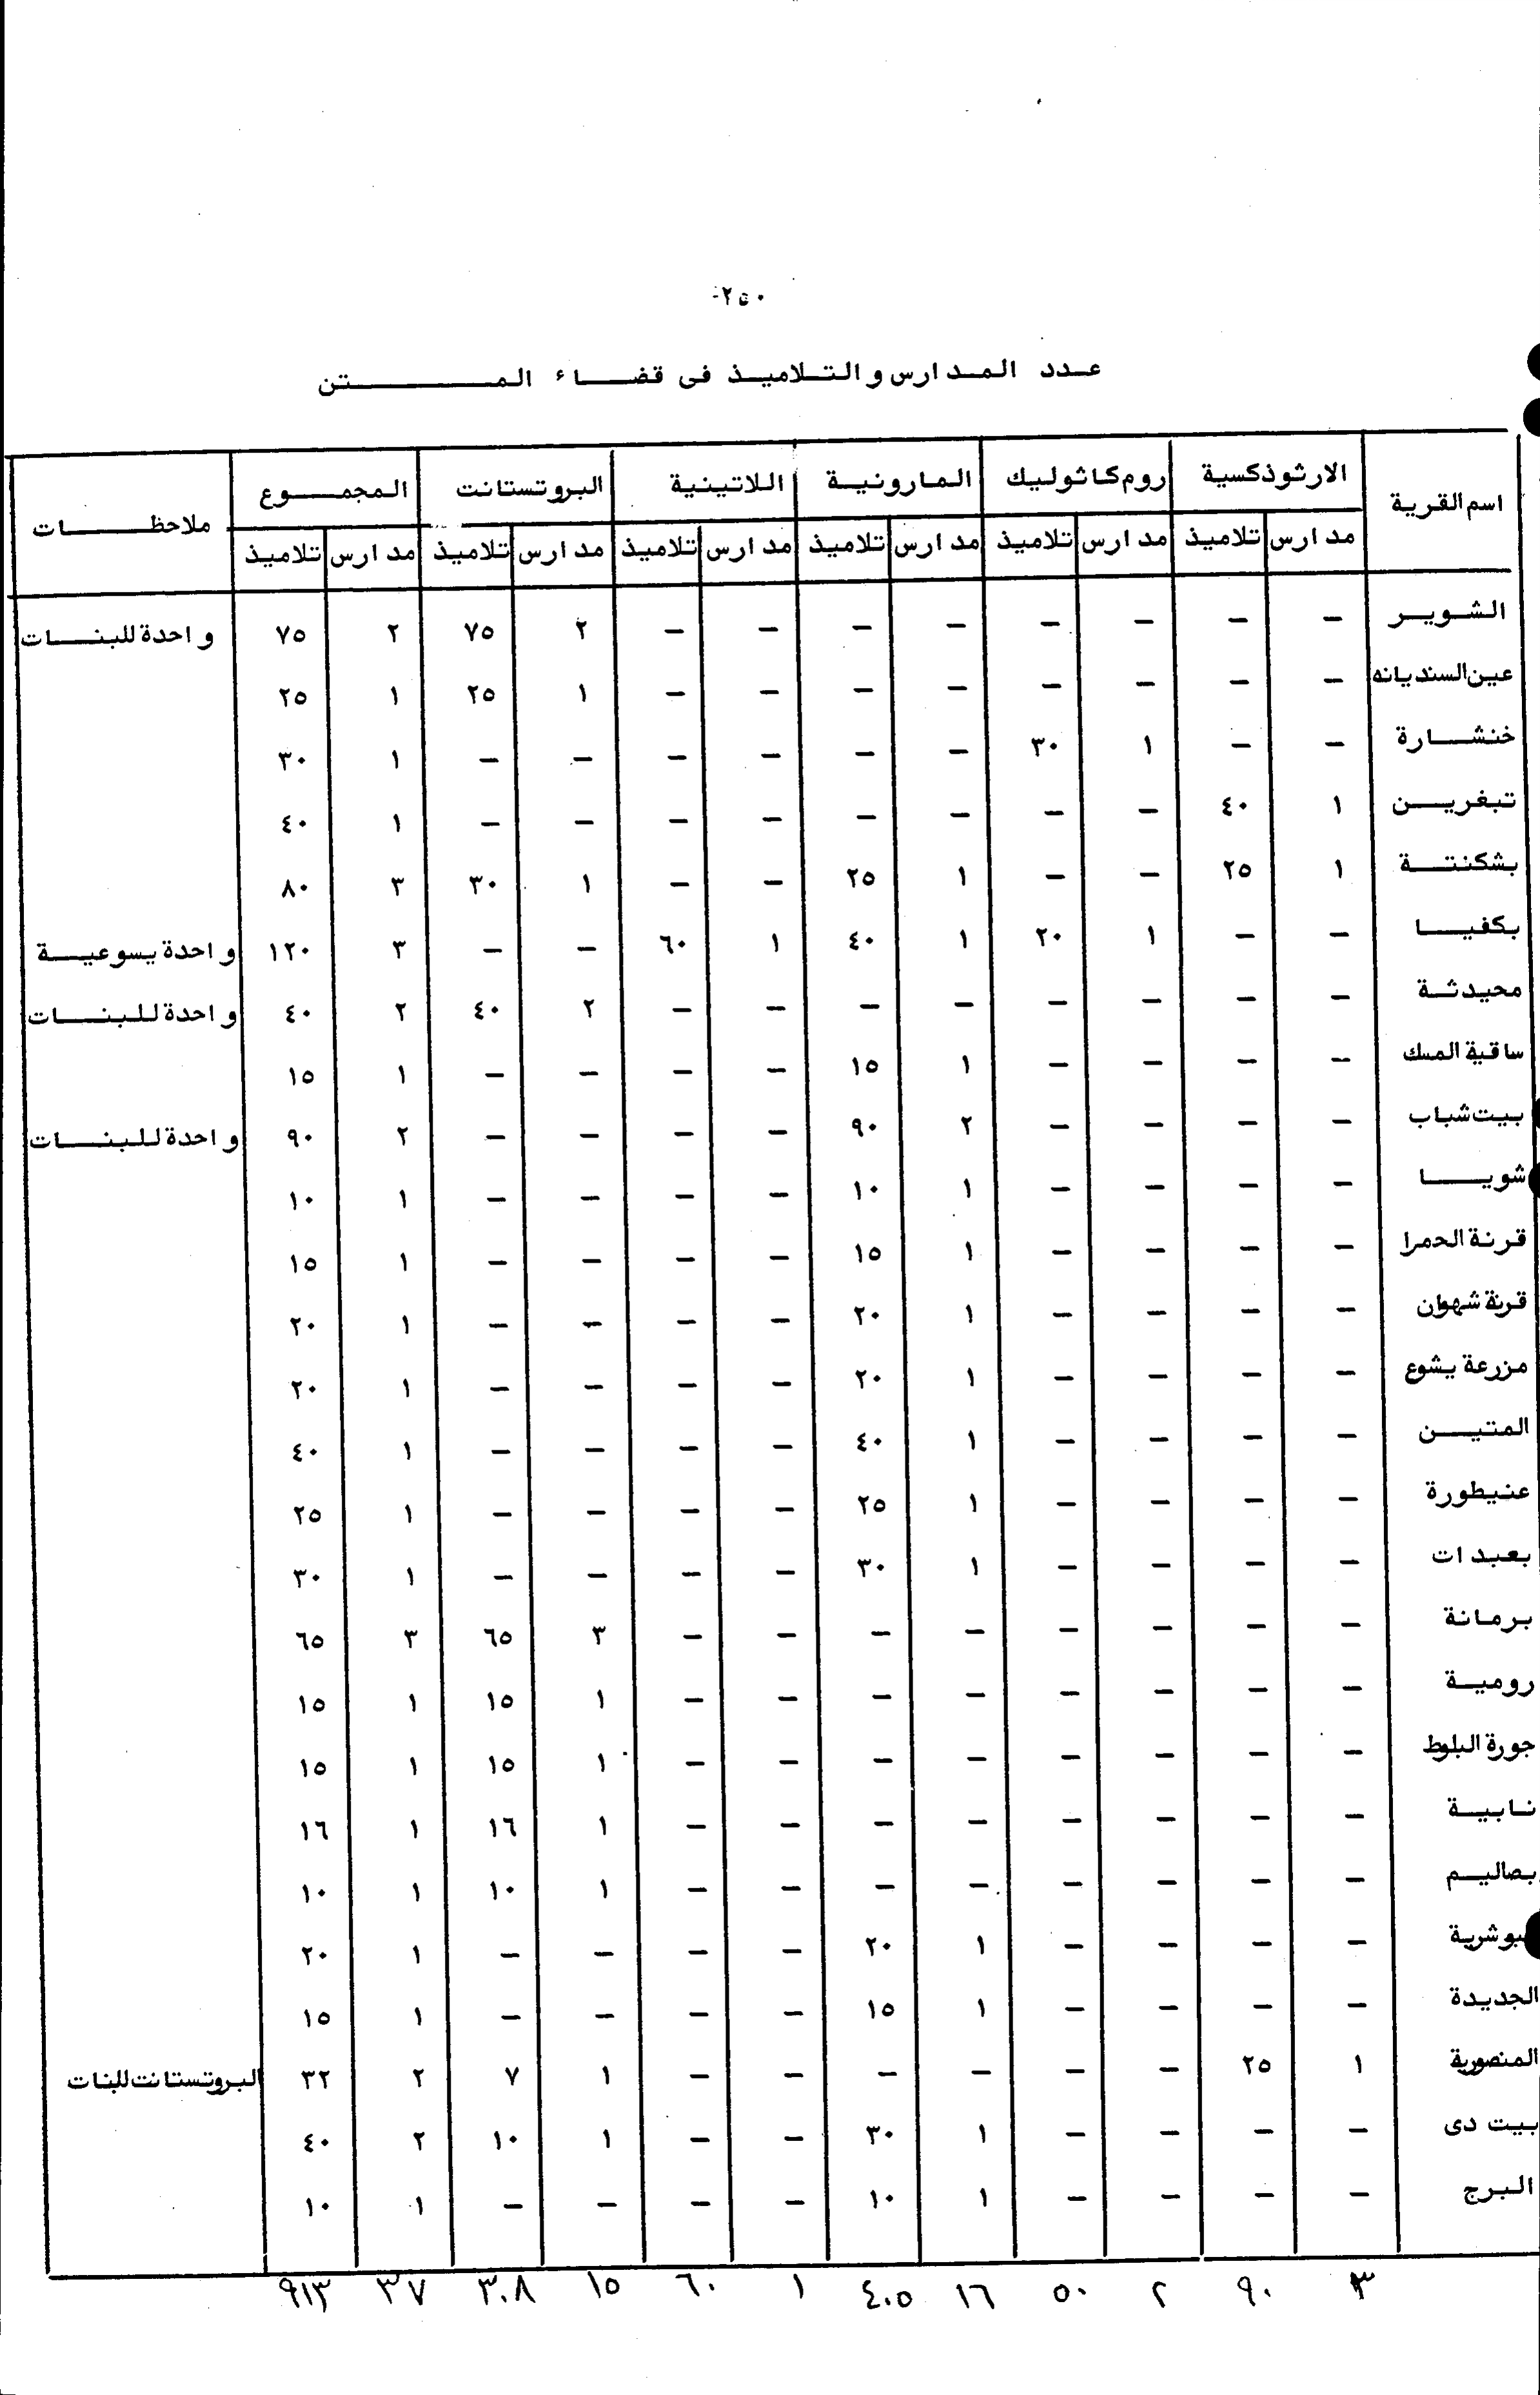 -٢٥٠
عدد المدارس والتلاميذ فى قضاء المتن
اسم القرية الارثوذكسية روم كاثوليك المارونية اللاتينية البروتستانت المجموع ملاحظات
مدارس تلاميذ مدارس تلاميذ مدارس تلاميذ مدارس تلاميذ مدارس تلاميذ مدارس تلاميذ
الشوير – – – – – – – – ٢ ٧٥ ٢ ٧٥ واحدة للبنات
عين السنديانه – – – – – – – – ١ ٢٥ ١ ٢٥
خنشارة – – ١ ٣٠ – – – – – – ١ ٣٠
تبغرين ١ ٤٠ – – – – – – – – ١ ٤٠
بشكنتة ١ ٢٥ – – ١ ٢٥ – – ١ ٣٠ ٣ ٨٠
بكفيا – – ١ ٢٠ ١ ٤٠ ١ ٦٠ – – ٣ ١٢٠ واحدة يسوعية
محيدثة – – – – – – – – ٢ ٤٠ ٢ ٤٠ واحدة للبنات
ساقية المسك – – – – ١ ١٥ – – – – ١ ١٥
بيت شباب – – – – ٢ ٩٠ – – – – ٢ ٩٠ واحدة للبنات
شويا – – – – ١ ١٠ – – – – ١ ١٠
قرنة الحمرا – – – – ١ ١٥ – – – – ١ ١٥
قرنة شهوان – – – – ١ ٢٠ – – – – ١ ٢٠
مزرعة يشوع – – – – ١ ٢٠ – – – – ١ ٢٠
المتين – – – – ١ ٤٠ – – – – ١ ٤٠
عنيطورة – – – – ١ ٢٥ – – – – ١ ٢٥
بعبدات – – – – ١ ٣٠ – – – – ١ ٣٠
برمانة – – – – – – – – ٣ ٦٥ ٣ ٦٥
رومية – – – – – – – – ١ ١٥ ١ ١٥
جورة البلوط – – – – – – – – ١ ١٥ ١ ١٥
نابية – – – – – – – – ١ ١٦ ١ ١٦
بصاليم – – – – – – – – ١ ١٠ ١ ١٠
بوشرية – – – – ١ ٢٠ – – – – ١ ٢٠
الجديدة – – – – ١ ١٥ – – – – ١ ١٥
المنصورية ١ ٢٥ – – – – – – ١ ٧ ٢ ٣٢ البروتستانت للبنات
بيت دى – – – – ١ ٣٠ – – ١ ١٠ ٢ ٤٠
البرج – – – – ١ ١٠ – – – – ١ ١٠
٣ ٩٠ ٢ ٥٠ ١٦ ٤٠٥ ١ ٦٠ ١٥ ٣٠٨ ٣٧ ٩١٣